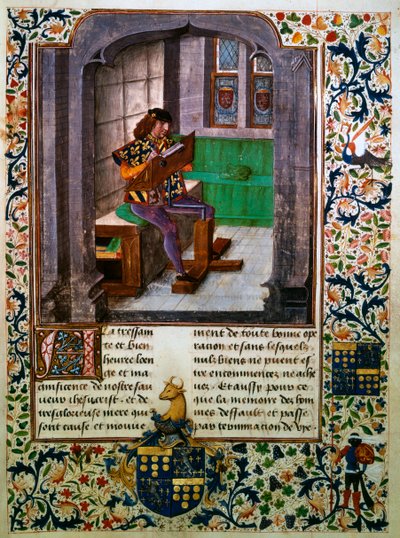 A la tressain
te et bien
heuree loen
ge et ma
gnificence de nostre sau
ueur ihesucrist. et de
sa glorieuse mere qui
sont cause et mouue
ment de toute bonne ope
racion et sans lesquelz
nulz biens ne puent es
tre encommencez ne ache
uez. Et aussy pour ce
que la memoire des hom
mes deffault et passe
par terminacion de vye